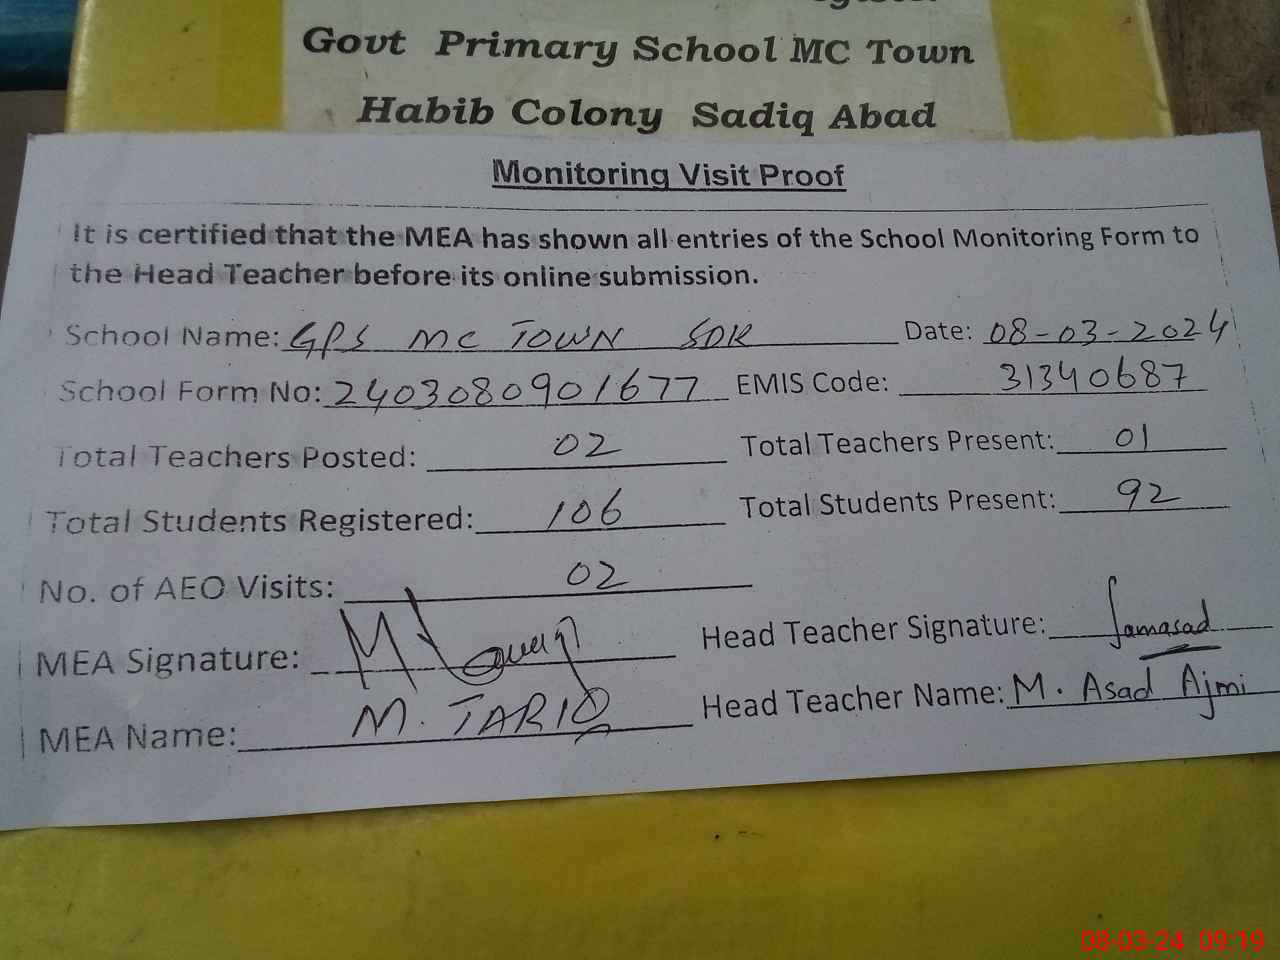 Govt Primary School MC Town
Habib Colony Sadiq Abad
Monitoring Visit Proof
It is certified that the MEA has shown all entries of the School Monitoring Form to
the Head Teacher before its online submission.
School Name: GPS MC TOWN SDK Date: 08-03-2024
School Form No: 2403080901677 EMIS Code: 31340687
Total Teachers Posted: 02 Total Teachers Present: 01
Total Students Registered: 106 Total Students Present: 92
No. of AEO Visits: 02
MEA Signature: Head Teacher Signature:
MEA Name: M. TARIQ Head Teacher Name: M. Asad Ajmi
08-03-24 09:19